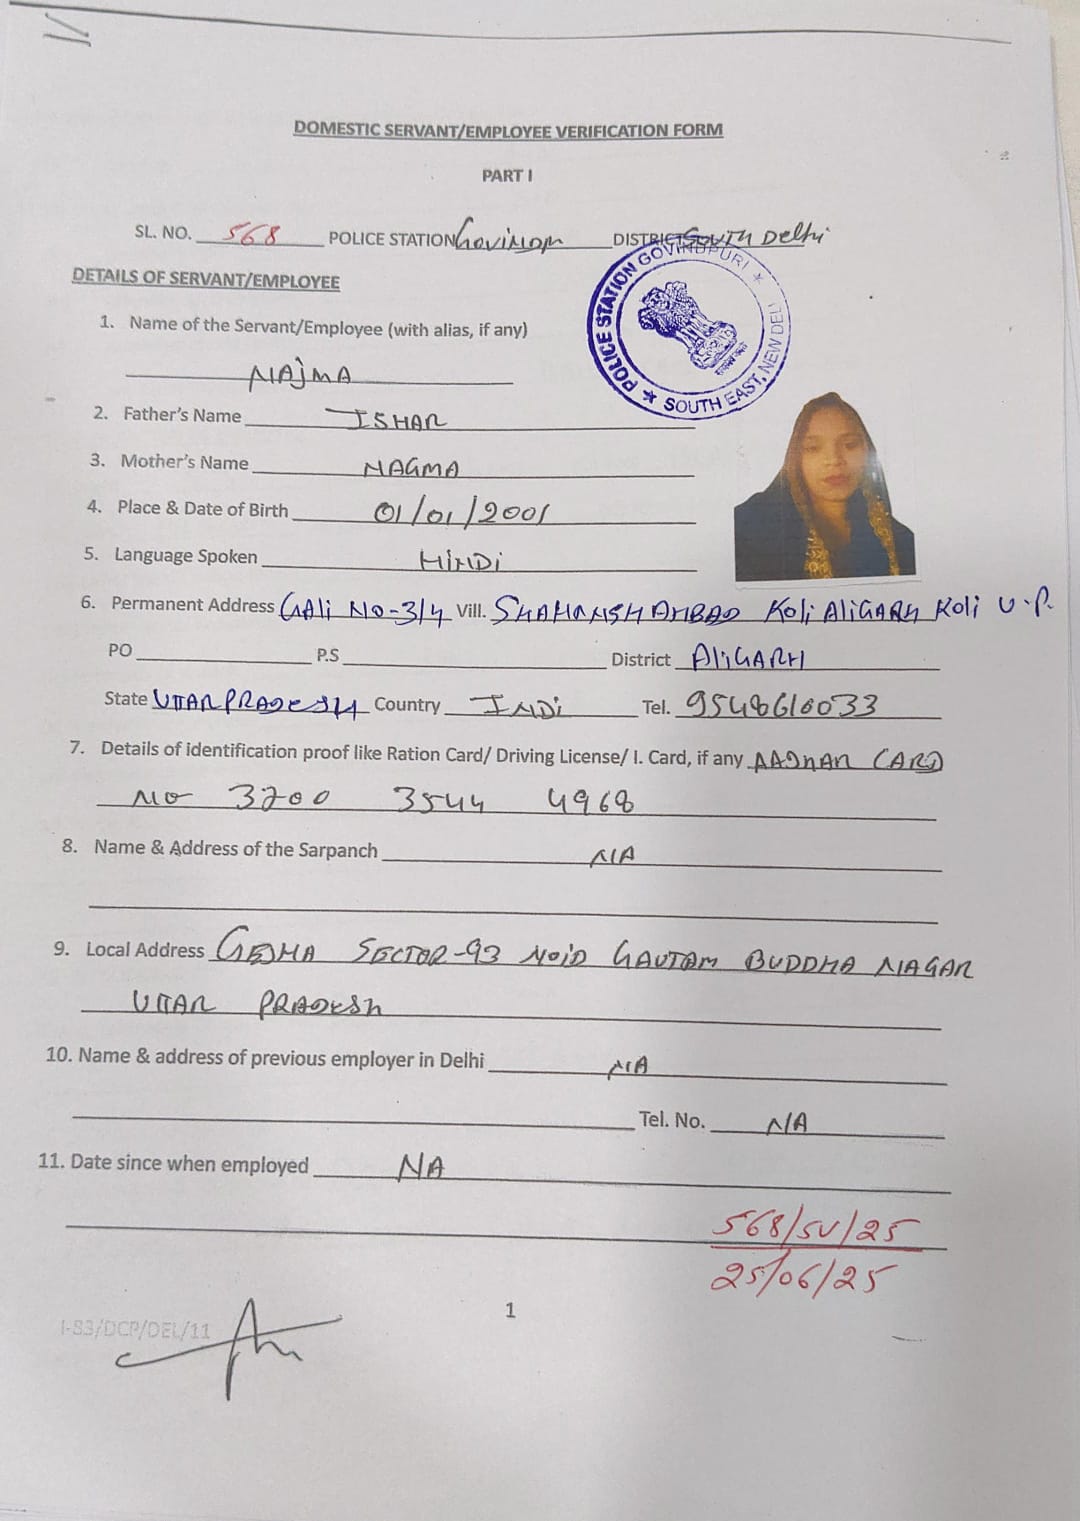 DOMESTIC SERVANT/EMPLOYEE VERIFICATION FORM
PART I
SL. NO. 568 POLICE STATION DISTRICT South Delhi
POLICE STATION GOVINDPURI ★ SOUTH EAST, NEW DELHI ★
DETAILS OF SERVANT/EMPLOYEE
1. Name of the Servant/Employee (with alias, if any)
NAJMA
2. Father's Name ISHAR
3. Mother's Name NAGMA
4. Place & Date of Birth 01/01/2001
5. Language Spoken HINDI
6. Permanent Address GALI NO-3/4 Vill. SHAHANSHAHBAD Koli ALIGARH Koli U.P.
PO P.S District ALIGARH
State UTTAR PRADESH Country INDI Tel. 9548610033
7. Details of identification proof like Ration Card/ Driving License/ I. Card, if any AADHAR CARD
NO 3700 3544 4968
8. Name & Address of the Sarpanch N/A
9. Local Address GEJHA SECTOR-93 NOID GAUTAM BUDDHA NAGAR
UTTAR PRADESH
10. Name & address of previous employer in Delhi N/A
Tel. No. N/A
11. Date since when employed NA
568/SV/25
25/06/25
1
I-83/DCP/DEL/11